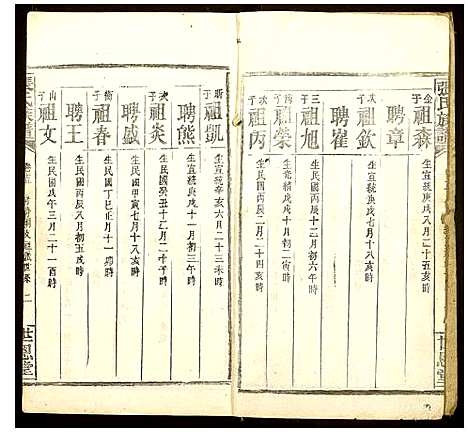 張氏族譜
世恩堂
金子 祖森 生宣統庚戌六月二十五亥時
聘章
次子 祖欽 生宣統庚戌七月十八亥時
聘崔
三子 祖旭 生民國丙辰十二月初六午時
祖榮 生宣統庚戌十月初二寅時
次子 祖丙 生民國丙辰二月二十四亥時
祖凱 生宣統辛亥六月二十三時
聘熊 生宣統庚戌十一月初三午時
次子 祖炎 生民國癸丑十二月二十二午時
聘盛 生民國甲寅七月十八亥時
子 祖春 生民國丁巳正月十一時
聘王 生民國丙辰八月初五戌時
子 祖文 生民國戊午三月二十一戌時
張氏族譜
世恩堂